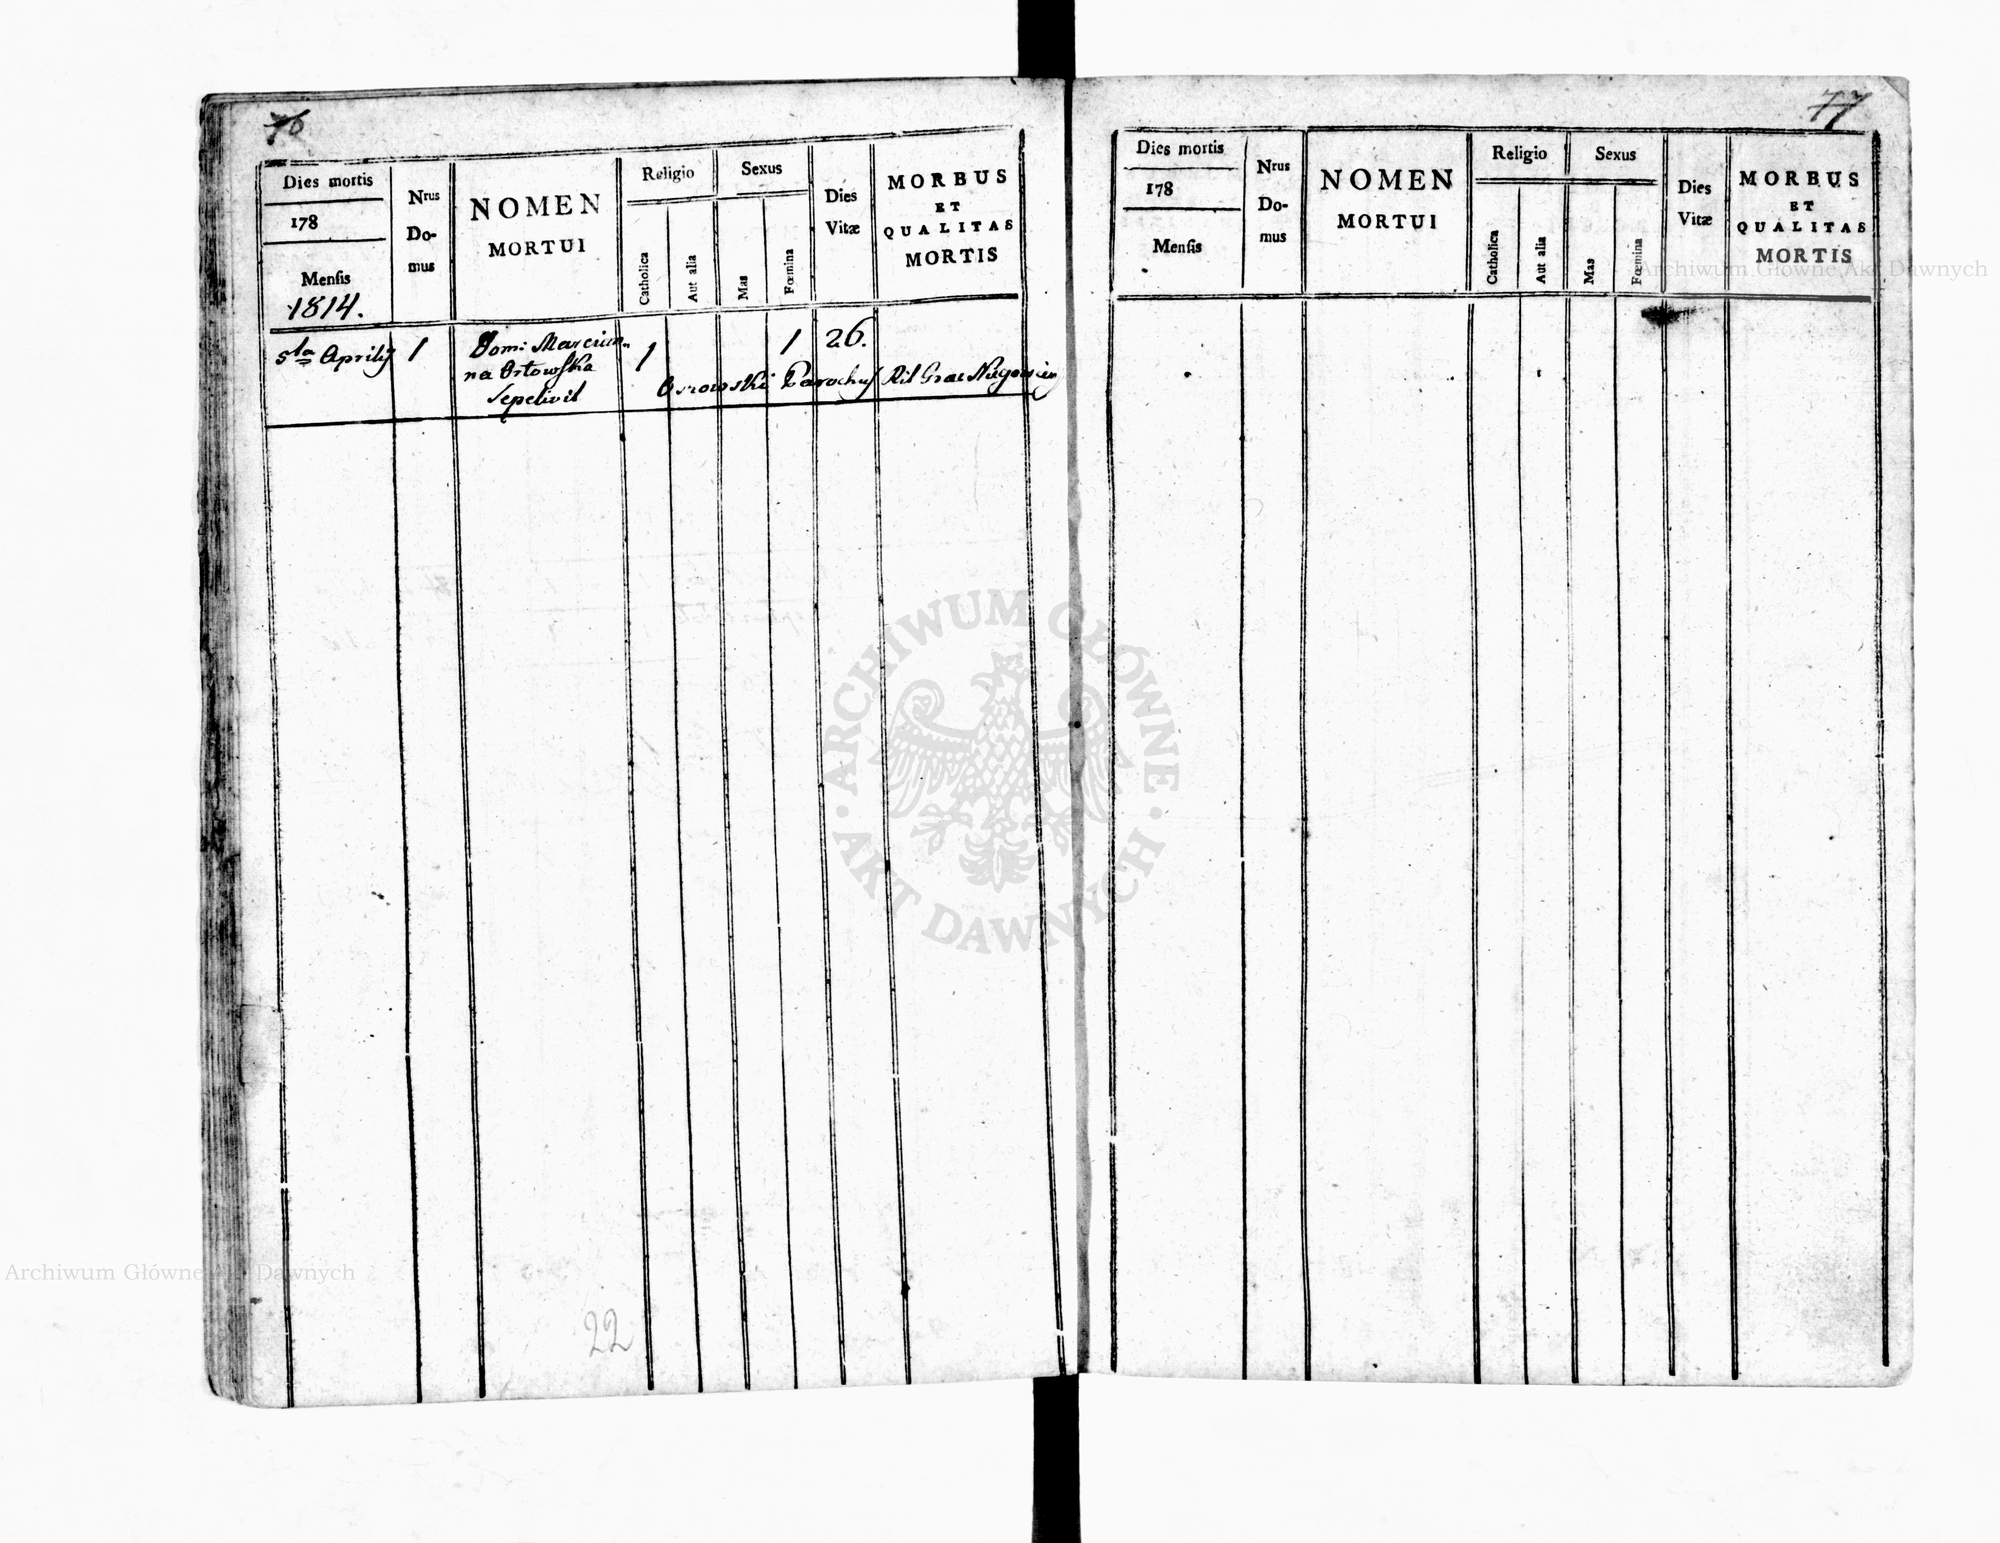 76
Dies mortis
178
Mensis
1814.
Nrus
Do-
mus
NOMEN
MORTUI
Religio
Catholica
Aut alia
Sexus
Mas
Fœmina
Dies
Vitæ
MORBUS
ET
QUALITAS
MORTIS
5ta Aprilis 1 Dom: Marcian- 1 1 26.
na Orłowska
Sepelivit Osrowski Parochus Rit Graec
22
77
Dies mortis
178
Mensis
Nrus
Do-
mus
NOMEN
MORTUI
Religio
Catholica
Aut alia
Sexus
Mas
Fœmina
Dies
Vitæ
MORBUS
ET
QUALITAS
MORTIS
Archiwum Główne Akt Dawnych
ARCHIWUM GŁÓWNE
AKT DAWNYCH
Archiwum Główne Akt Dawnych